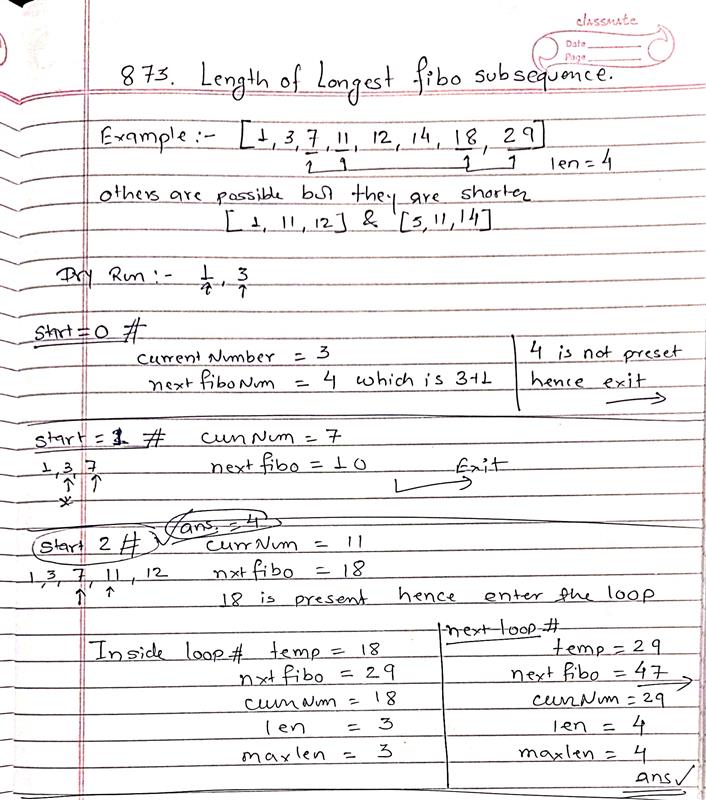 classmate
Date
Page
873. Length of Longest fibo subsequence.
Example:- [1, 3, 7, 11, 12, 14, 18, 29]
1 1 1 1
len = 4
others are possible but they are shorter
[1, 11, 12] & [5, 11, 14]
Dry Run:- 1, 3
Start = 0 #
current Number = 3
next fibo Num = 4 which is 3+1
4 is not preset
hence exit
Start = 1 # curr Num = 7
1, 3, 7 next fibo = 10 Exit
ans = 4
Start 2 # curr Num = 11
1, 3, 7, 11, 12 nxt fibo = 18
18 is present hence enter the loop
Inside loop # temp = 18
nxt fibo = 29
curr Num = 18
len = 3
maxlen = 3
next loop #
temp = 29
next fibo = 47
curr Num = 29
len = 4
maxlen = 4
ans ✓